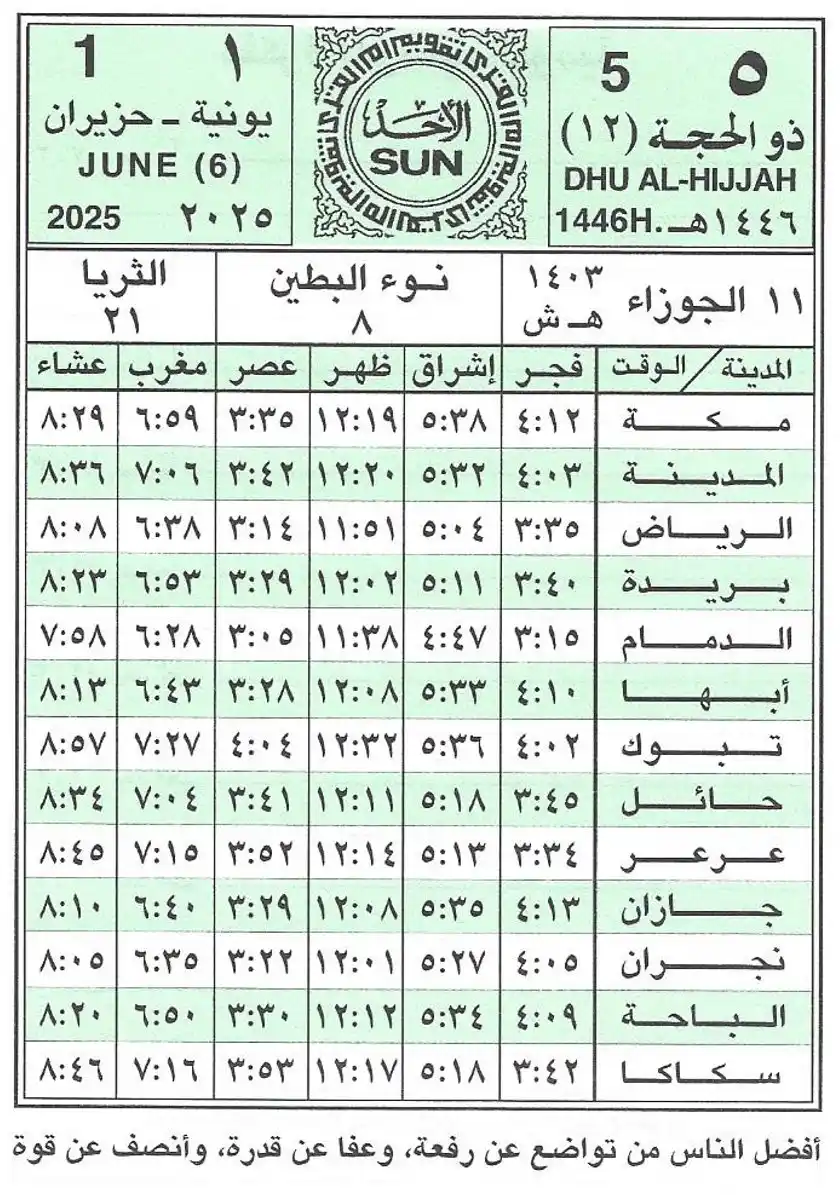 ٥ 5
ذو الحجة (١٢)
DHU AL-HIJJAH
1446H. ١٤٤٦هـ
تقويم ام القرى
الأحد
SUN
١ 1
يونية - حزيران
JUNE (6)
2025 ٢٠٢٥
١١ الجوزاء ١٤٠٣ هـ ش
نوء البطين
٨
الثريا
٢١
المدينة / الوقت فجر إشراق ظهر عصر مغرب عشاء
مكة ٤:١٢ ٥:٣٨ ١٢:١٩ ٣:٣٥ ٦:٥٩ ٨:٢٩
المدينة ٤:٠٣ ٥:٣٢ ١٢:٢٠ ٣:٤٢ ٧:٠٦ ٨:٣٦
الرياض ٣:٣٥ ٥:٠٤ ١١:٥١ ٣:١٤ ٦:٣٨ ٨:٠٨
بريدة ٣:٤٠ ٥:١١ ١٢:٠٢ ٣:٢٩ ٦:٥٣ ٨:٢٣
الدمام ٣:١٥ ٤:٤٧ ١١:٣٨ ٣:٠٥ ٦:٢٨ ٧:٥٨
أبها ٤:١٠ ٥:٣٣ ١٢:٠٨ ٣:٢٨ ٦:٤٣ ٨:١٣
تبوك ٤:٠٢ ٥:٣٦ ١٢:٣٢ ٤:٠٤ ٧:٢٧ ٨:٥٧
حائل ٣:٤٥ ٥:١٨ ١٢:١١ ٣:٤١ ٧:٠٤ ٨:٣٤
عرعر ٣:٣٤ ٥:١٣ ١٢:١٤ ٣:٥٢ ٧:١٥ ٨:٤٥
جازان ٤:١٣ ٥:٣٥ ١٢:٠٨ ٣:٢٩ ٦:٤٠ ٨:١٠
نجران ٤:٠٥ ٥:٢٧ ١٢:٠١ ٣:٢٢ ٦:٣٥ ٨:٠٥
الباحة ٤:٠٩ ٥:٣٤ ١٢:١٢ ٣:٣٠ ٦:٥٠ ٨:٢٠
سكاكا ٣:٤٢ ٥:١٨ ١٢:١٧ ٣:٥٣ ٧:١٦ ٨:٤٦
أفضل الناس من تواضع عن رفعة، وعفا عن قدرة، وأنصف عن قوة